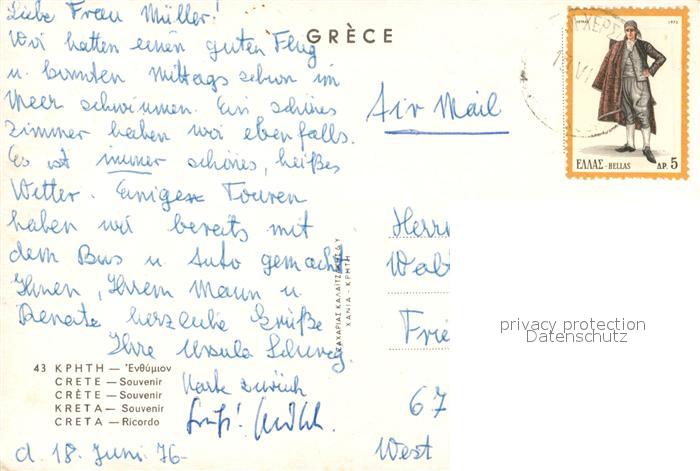 Liebe Frau Müller!
Wir hatten einen guten Flug
u. konnten Mittags schon im
Meer schwimmen. Ein schönes
Zimmer haben wir ebenfalls.
Es ist immer schönes, heißes
Wetter. Einige Touren
haben wir bereits mit
dem Bus u. Auto gemacht
Ihnen, Ihrem Mann u.
Renate herzliche Grüße
Ihre Ursula
Karte zurück
Gruß!
d. 18. Juni 76
GRÈCE
Air Mail
1973
ΕΛΛΑΣ-HELLAS ΔΡ. 5
Herrn
Walt
Frie
67
West
ΧΑΝΙΑ - ΚΡΗΤΗ
43 ΚΡΗΤΗ — Ἐνθύμιον
CRETE — Souvenir
CRÈTE — Souvenir
KRETA — Souvenir
CRETA — Ricordo
privacy protection
Datenschutz